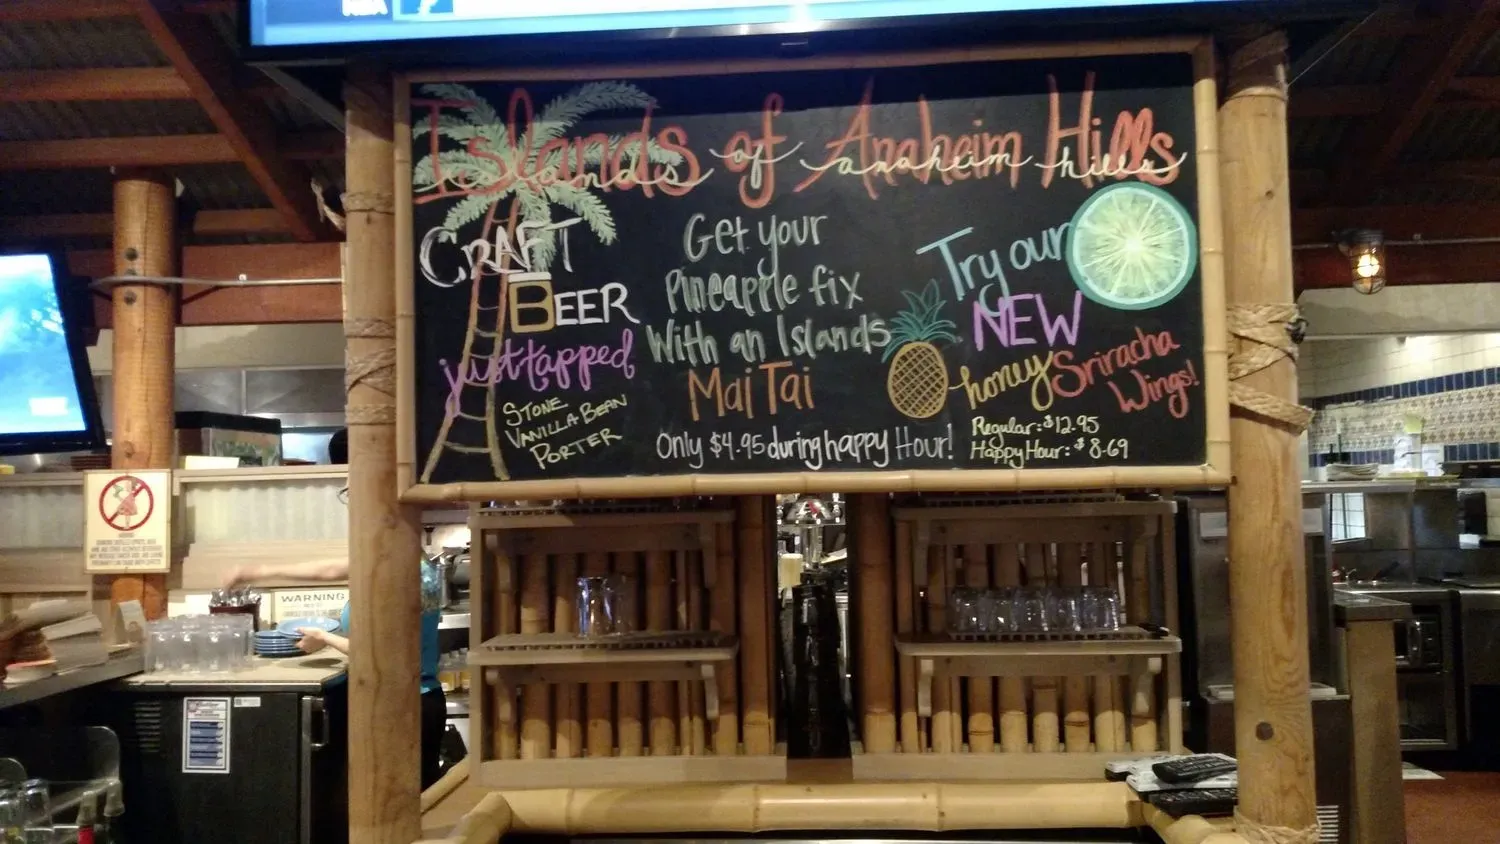 NBA
Islands of Anaheim Hills
islands of anaheim hills
CRAFT
BEER
just tapped
STONE
VANILLA BEAN
PORTER
Get your
Pineapple fix
With an Islands
Mai Tai
Only $4.95 during happy Hour!
Try our
NEW
honey Sriracha
Wings!
Regular: $12.95
Happy Hour: $8.69
WARNING
WARNING